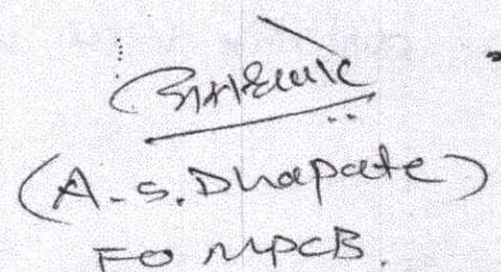 (A.S. Dhapate)
FO MPCB.